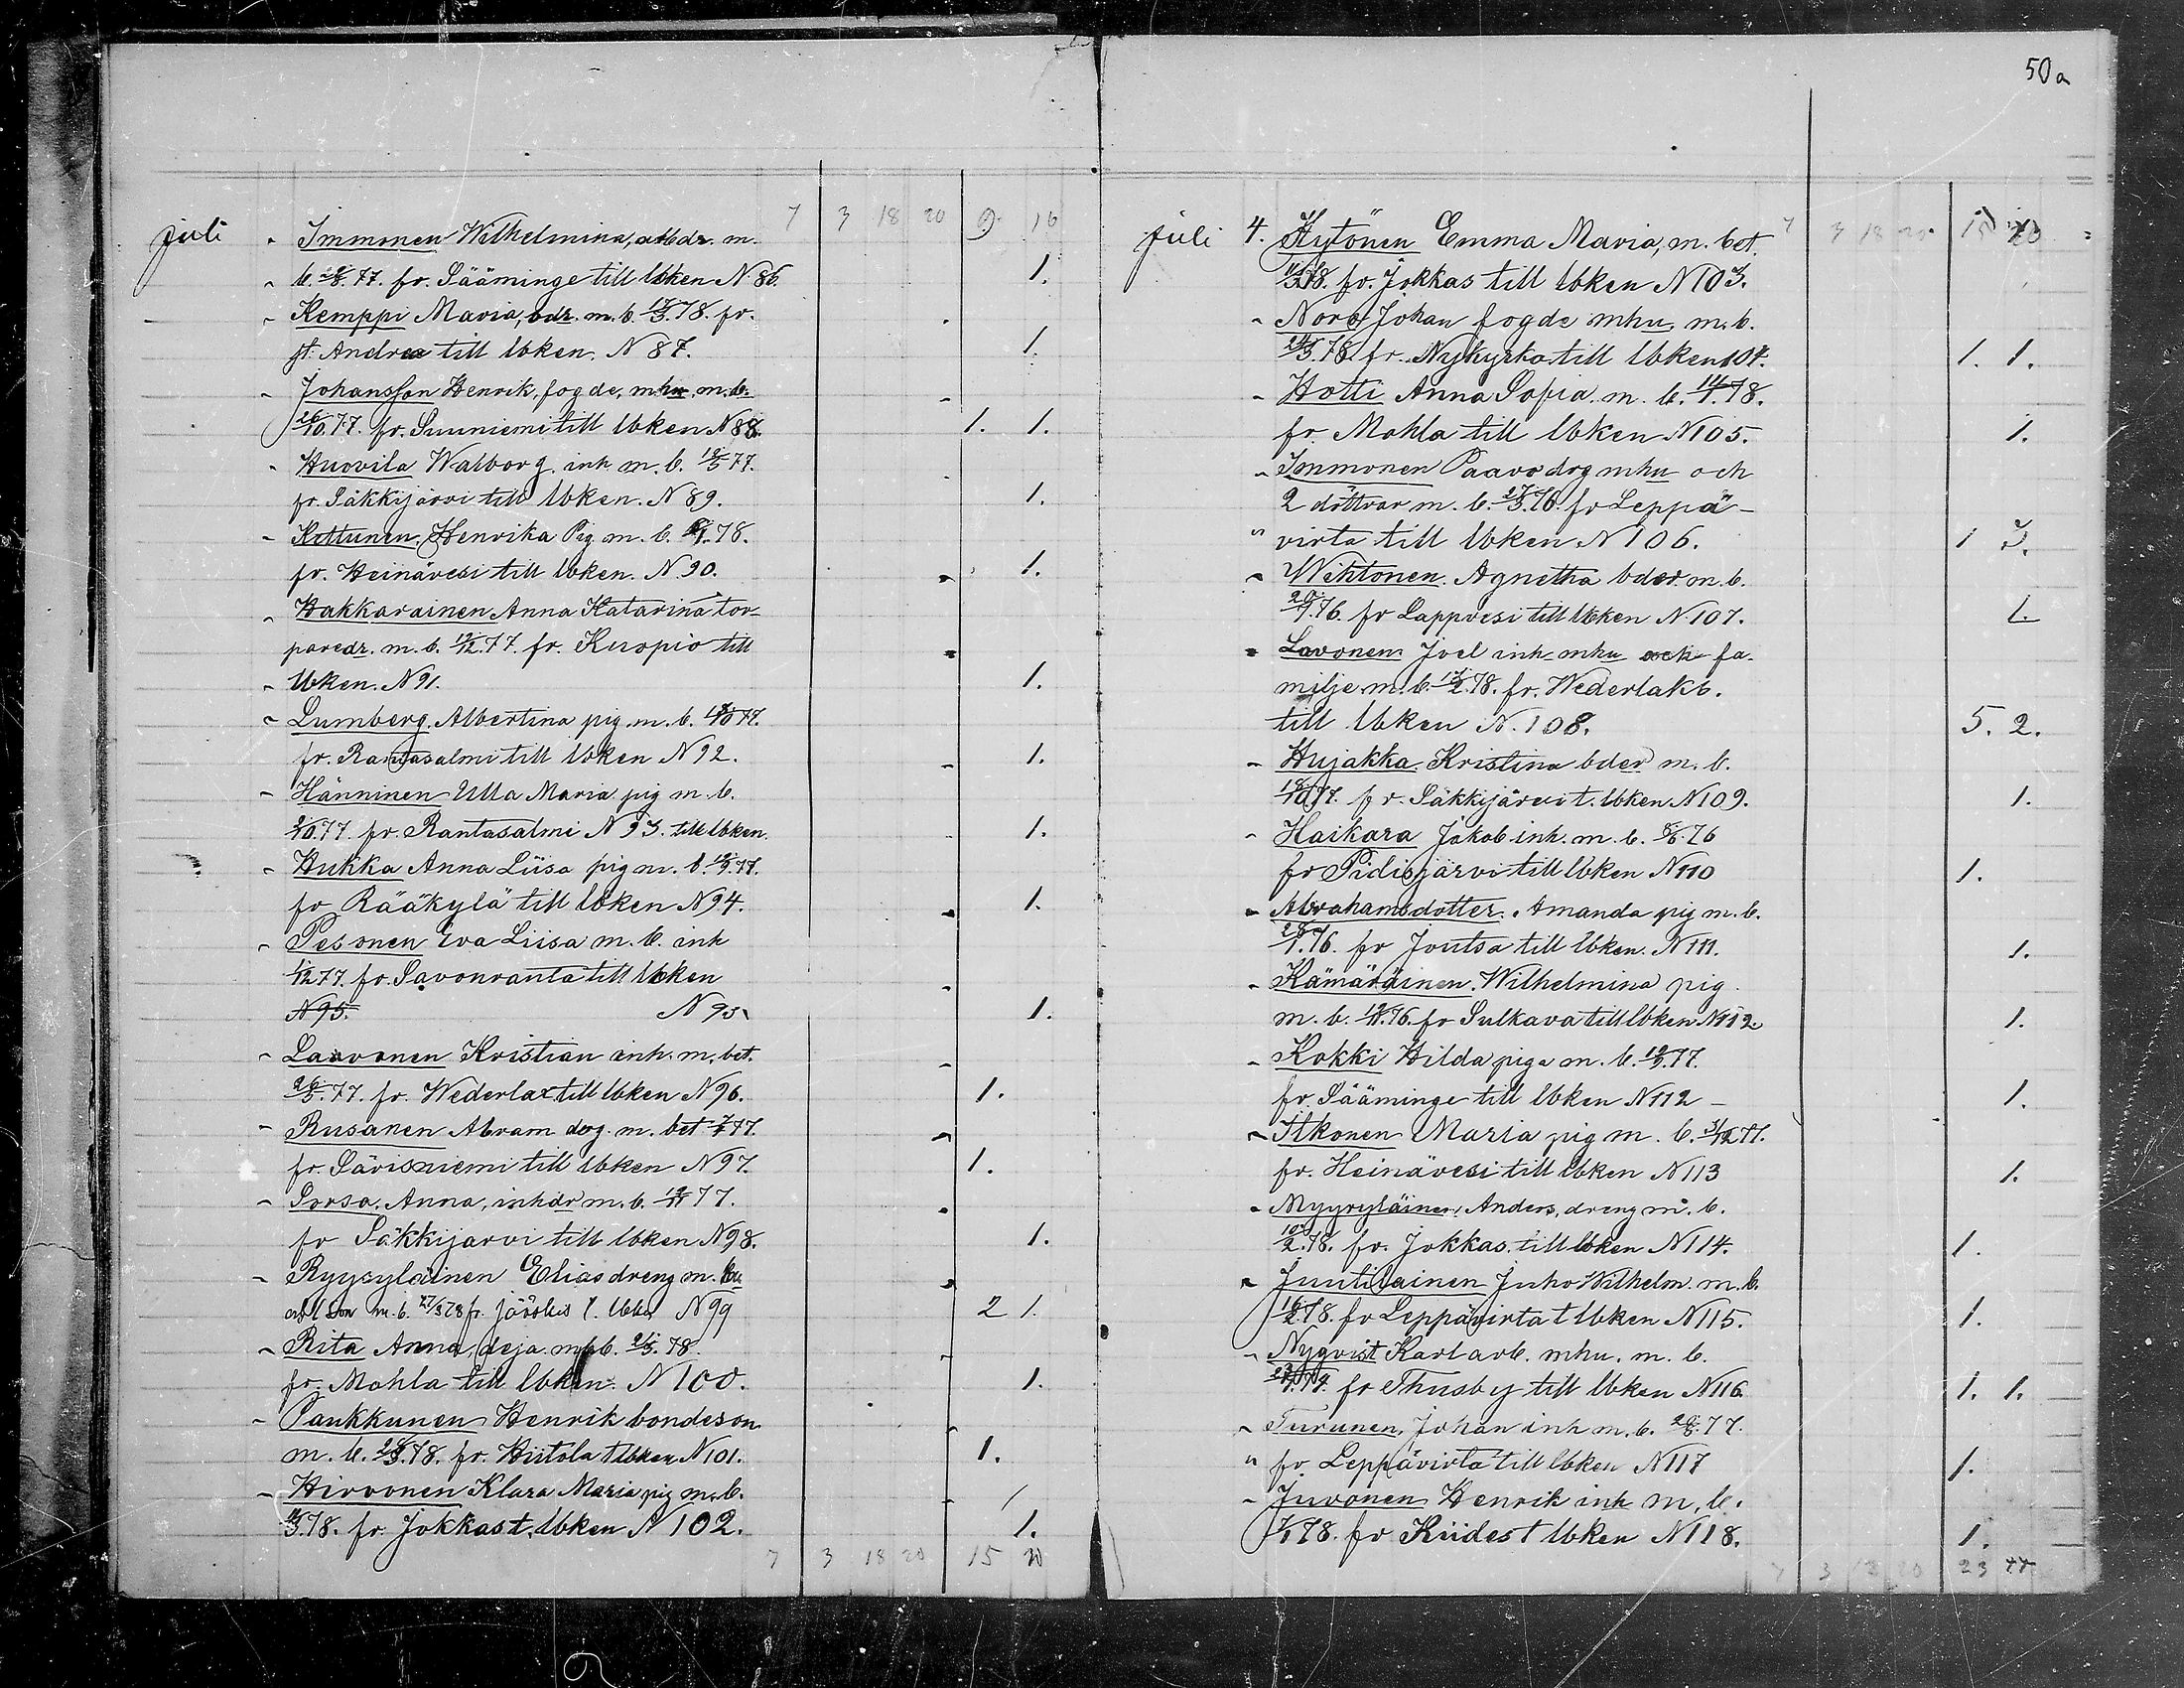 50a
7 3 18 20 9 16
juli " Immonen Wilhelmina, arbdr. m.
" b. 28/8.77. fr. Sääminge till lbken N 86. 1.
" Kemppi Maria, bdr. m. b. 18/3.78. fr.
St. Andrea till lbken. N 87. 1.
" Johansson Henrik, fogde, mhu. m. b.
26/10.77. fr. Suuniemi till lbken N 88. 1. 1.
" Huovila Walborg. inh m. b. 18/5 77.
fr. Säkkijärvi till lbken. N 89. 1.
" Kottunen. Henrika Pig m. b. /1.78.
fr. Heinävesi till lbken. N. 90. 1.
" Hakkarainen Anna Katarina tor-
paredr. m. b. 19/12.77. fr. Kuopio till
" lbken. N 91. 1.
" Lumberg. Albertina pig. m. b. 18/10 77.
fr. Rantasalmi till lbken N 92. 1.
" Hänninen Ulla Maria pig m. b.
2/10.77. fr. Rantasalmi N 93. till lbken. 1.
" Hukka Anna Liisa pig m. b. 19/9.77.
fr Rääkylä till lbken N 94. 1.
" Pesonen Eva Liisa m. b. inh
1/12 77. fr. Savonranta till lbken
N 95. N 95 1.
" Laavonen Kristian inh. m. bet.
26/5.77. fr. Wederlax till lbken N 96. 1.
" Rusanen Abram drg. m. bet 77.
fr. Sävisniemi till lbken N 97. 1.
" Sorsa. Anna, inhdr m. b. 19/11 77.
fr Säkkijarvi till lbken N 98. 1.
" Ryysyläinen Elias dreng m. hu
och 1 son m. b. 27/3 78 fr. Jäaskis t. lbken N 99 2 1.
" Rita Anna, deja m. b. 21/3. 78.
fr. Mohla till lbken. N 100. 1.
" Paukkunen Henrik bondeson
m. b. 28/3.78. fr. Hiitola t lbken N 101. 1.
" Hirvonen Klara Maria pig m. b.
/3.78. fr. Jokkas t. lbken N 102. 1.
7 3 18 20 15 30
7 3 18 20 15
juli 4. Hytönen Emma Maria, m. bet.
/3 78. fr. Jokkas till lbken N 103.
" Noro Johan fogde mhu. m. b.
21/3.78. fr. Nykyrka till lbken 104. 1. 1.
" Hotti Anna Sofia. m. b. 14/1.78.
fr. Mohla till lbken N 105. 1.
" Immonen Paavo drg mhu och
2 döttrar m. b. 27/3.76. fr Leppä-
" virta till lbken N 106. 1 3.
" Wihtonen. Agnetha bder. m. b.
29/1.76. fr Lappvesi till lbken N. 107. 1.
" Lavonen Joel inh. mhu och fa-
milje. m. b. 13/2.78. fr. Wederlaks.
till lbken N. 108. 5. 2.
" Hujakka. Kristina bder m. b.
18/10 77. fr. Säkkijärvi t. lbken N 109. 1.
" Haikara Jakob inh. m. b. 8/6.76
fr Pidisjärvi till lbken N 110 1.
" Abrahamsdotter. Amanda pig m. b.
28/1.76. fr Joutsa till lbken. N 111. 1.
" Kämäräinen. Wilhelmina pig.
m. b. 19/11.76. fr Sulkava till lbken N 112. 1.
" Kokki Hilda piga m. b. 19/9.77.
fr. Sääminge till lbken N 112 - 1.
" Itkonen Maria pig m. b. 31/12 77.
fr. Heinävesi till lbken N 113 1.
" Myyryläinen, Anders, dreng m. b.
10/2.78. fr. Jokkas. till lbken N 114. 1.
" Juutilainen Juho Wilhelm. m. b.
16/2.78. fr Leppävirta t lbken N 115. 1.
" Nyqvist Karl arb. mhu. m. b.
fr Thusby till lbken N 116. 1. 1.
" Turunen, Johan inh m. b. 29/8.77.
" fr. Leppävirta till lbken N 117 1.
" Juvonen Henrik inh m. b.
/1 78. fr Kiides t lbken N 118. 1.
7 3 18 20 23 44